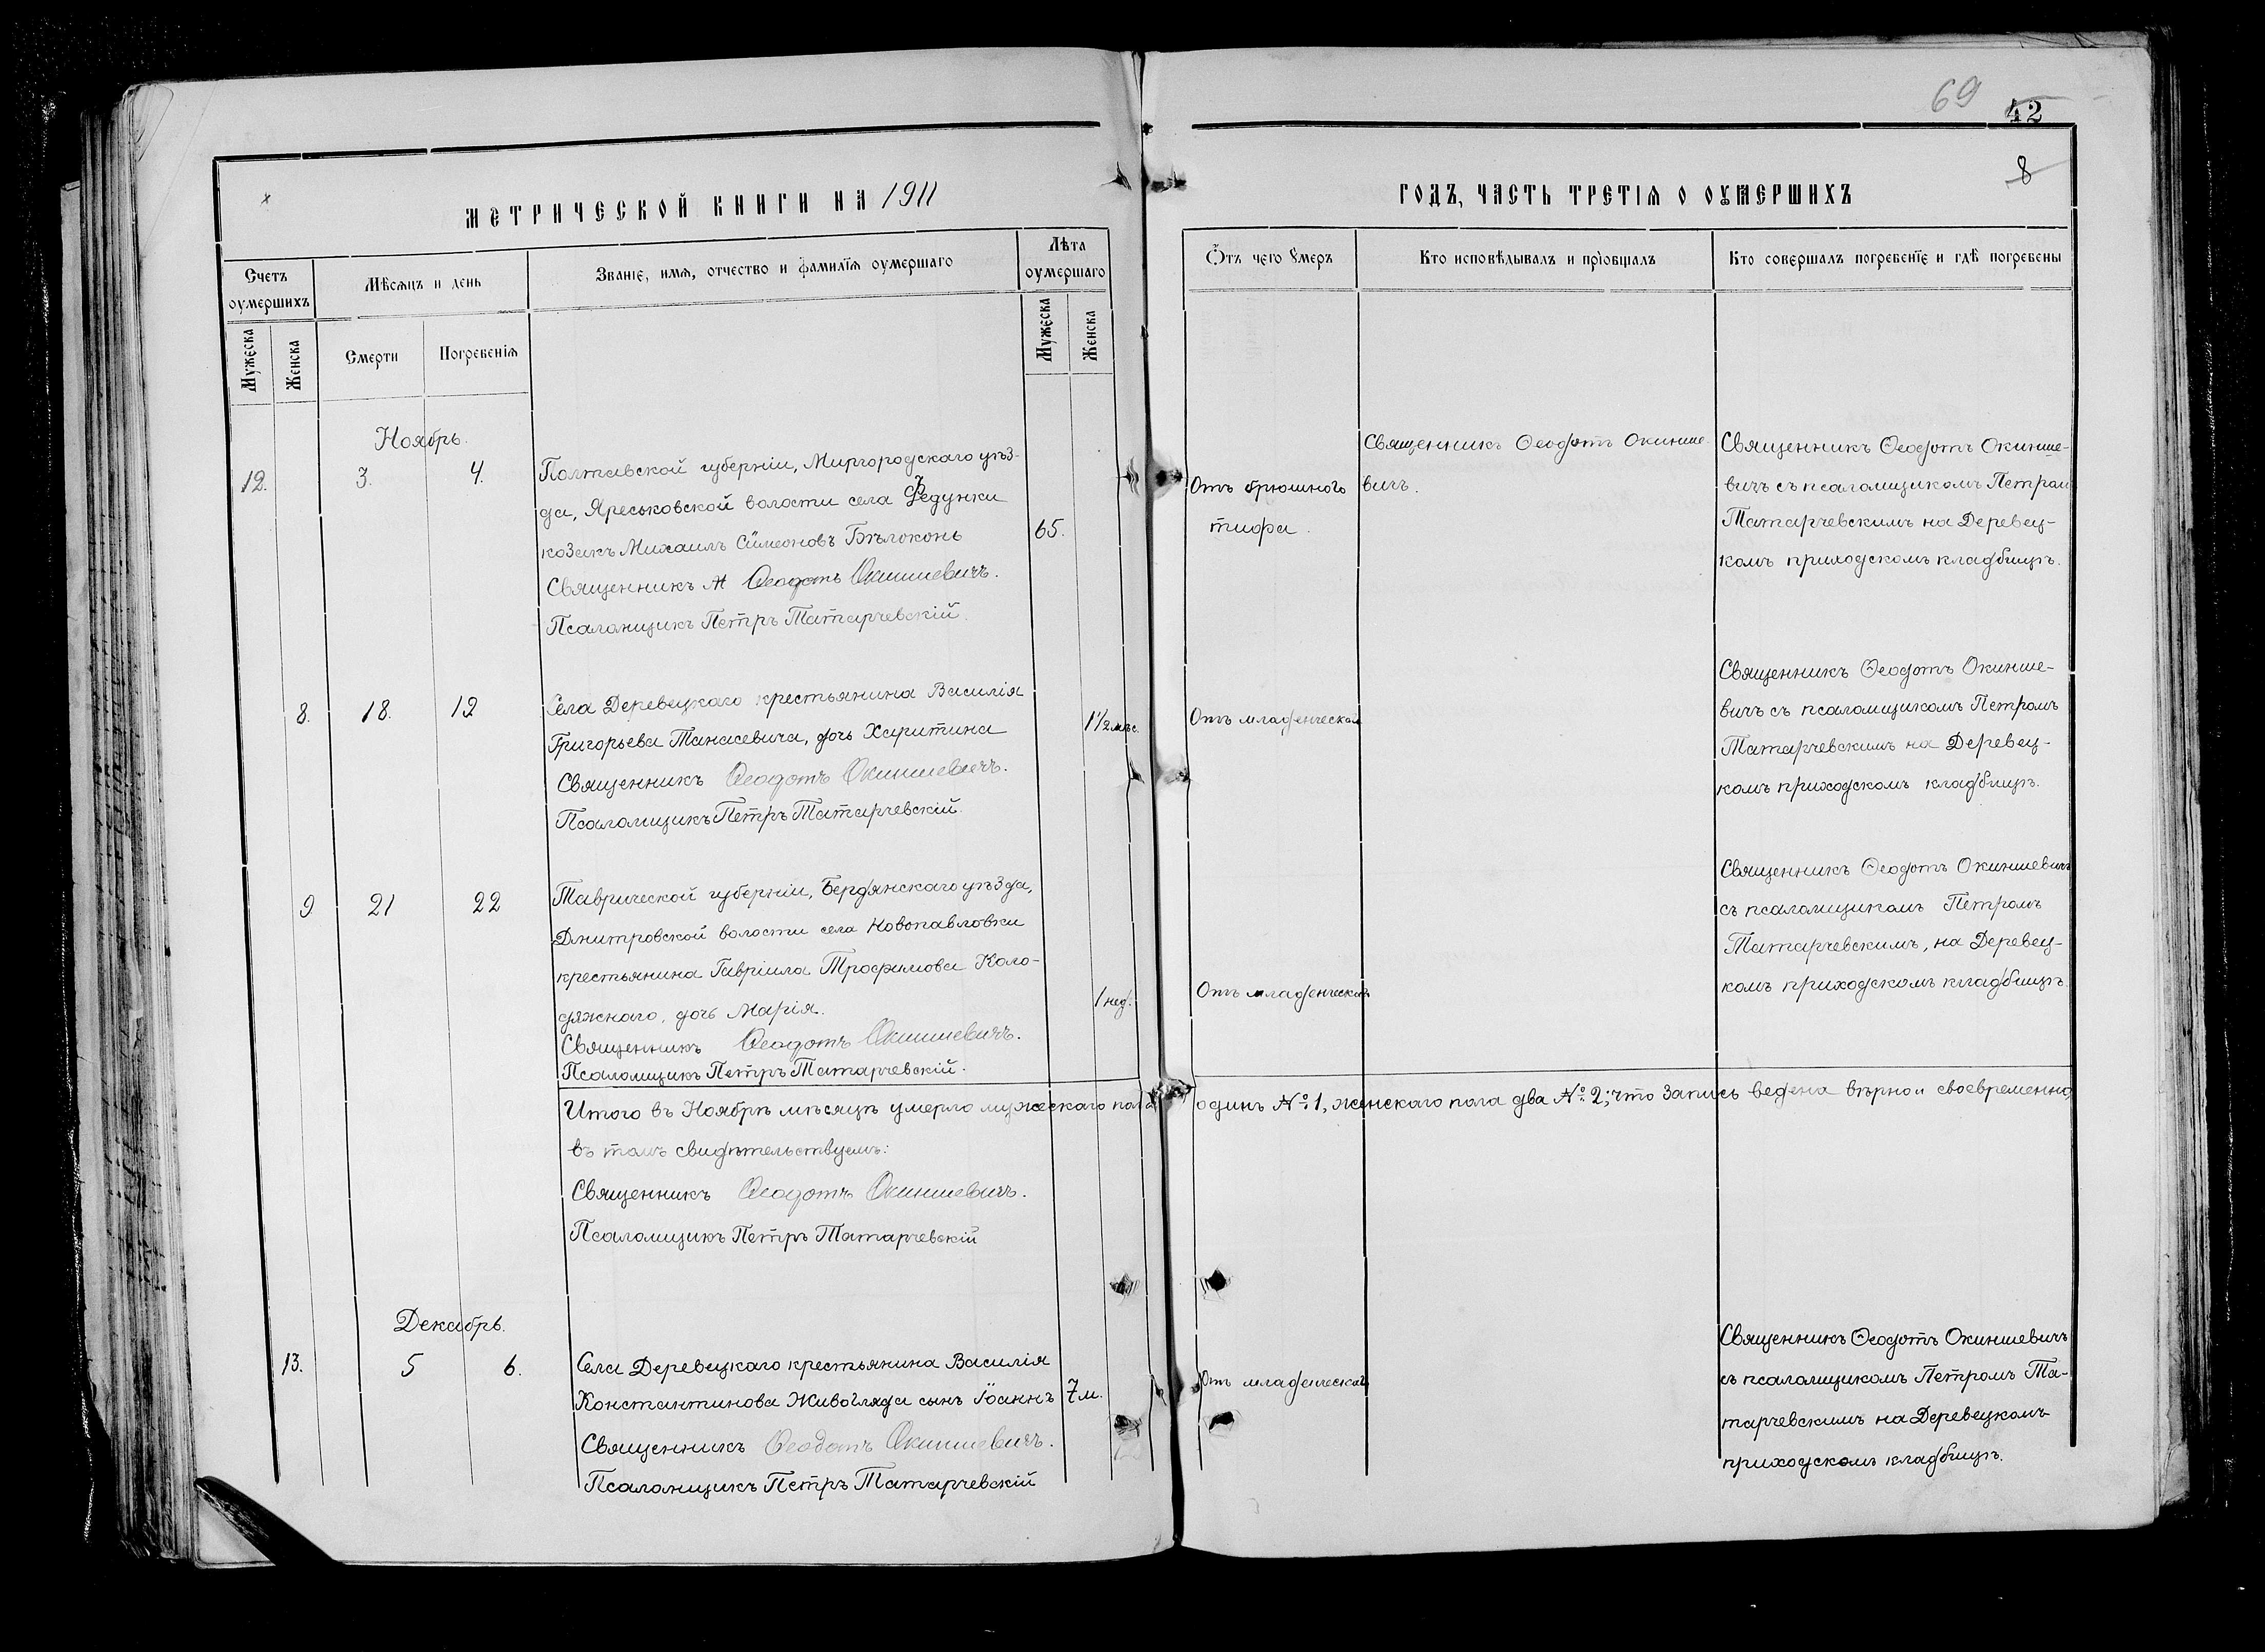 69
42
8
МЕТРИЧЕСКОЙ КНИГИ НА 1911
ГОДЪ, ЧАСТЬ ТРЕТІЯ О ОУМЕРШИХЪ
Счетъ оумершихъ
Мѣсяцъ и день
Званіе, имя, отчество и фамилїя оумершаго
Лѣта оумершаго
Отъ чего умеръ
Кто исповѣдывалъ и прїобщалъ
Кто совершалъ погребенїе и гдѣ погребены
Мужеска
Женска
Смерти
Погребенїя
Мужеска
Женска
Ноябрь.
12.
3.
4.
Полтавской губерніи, Миргородскаго уѣз-
да, Яреськовской волости села Федунки
козакъ Михаилъ Сѵмеоновъ Бѣлоконь
Священникъ Ѳеодотъ Окиншевичъ.
Псаломщикъ Петръ Татарчевскій.
65.
Отъ брюшного
тифа.
Священникъ Ѳеодотъ Окинше-
вичъ.
Священникъ Ѳеодотъ Окинше-
вичъ съ псаломщикомъ Петром
Татарчевскимъ на Деревец-
комъ приходскомъ кладбищѣ.
8.
18.
19
Села Деревецкаго крестьянина Василія
Григорьева Танасевича, дочь Харитина
Священникъ Ѳеодотъ Окиншевичъ.
Псаломщикъ Петръ Татарчевскій.
1½ мѣс.
Отъ младенческой
Священникъ Ѳеодотъ Окинше-
вичъ съ псаломщикомъ Петромъ
Татарчевскимъ на Деревец-
комъ приходскомъ кладбищѣ.
9
21
22
Таврической губерніи, Бердянскаго уѣзда,
Дмитровской волости села Новопавловки
крестьянина Гавріила Трофимова Коло-
дяжнаго, дочь Марія.
Священникъ Ѳеодотъ Окиншевичъ.
Псаломщикъ Петръ Татарчевскій.
1 нед.
Отъ младенческой
Священникъ Ѳеодотъ Окиншевичъ
съ псаломщикомъ Петромъ
Татарчевскимъ, на Деревец-
комъ приходскомъ кладбищѣ
Итого въ Ноябрѣ мѣсяцѣ умерло мужескаго пола одинъ № 1, женскаго пола два № 2; что запись ведена вѣрно и своевременно,
въ томъ свидѣтельствуемъ:
Священникъ Ѳеодотъ Окиншевичъ.
Псаломщикъ Петръ Татарчевскій
Декабрь.
13.
5
6.
Села Деревецкаго крестьянина Василія
Константинова Живогляда сынъ Іоаннъ
Священникъ Ѳеодотъ Окиншевичъ.
Псаломщикъ Петръ Татарчевскій
7 м.
Отъ младенческой
Священникъ Ѳеодотъ Окиншевичъ
съ псаломщикомъ Петромъ Та-
тарчевскимъ на Деревецкомъ
приходскомъ кладбищѣ.